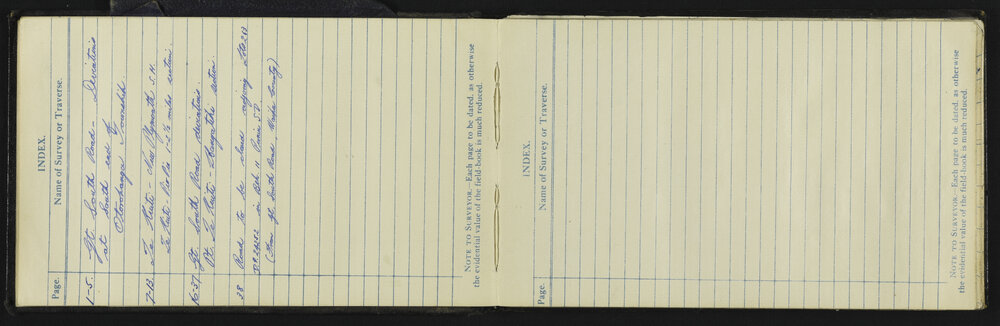 INDEX.
Page. Name of Survey or Traverse.
1-5. Gt. South Road - Deviations
at South end of
Otorohanga Township
7-13. Te Kuiti - New Plymouth S.H.
Te Kuiti - miles section.
16-37 Gt. South Road deviations
Pt. Te Kuiti - section
38 Road to be closed adjoining
in Blk II S.D.
(From Gt. South Road. County)
NOTE TO SURVEYOR.—Each page to be dated, as otherwise
the evidential value of the field-book is much reduced.
INDEX.
Page. Name of Survey or Traverse.
NOTE TO SURVEYOR.—Each page to be dated, as otherwise
the evidential value of the field-book is much reduced.